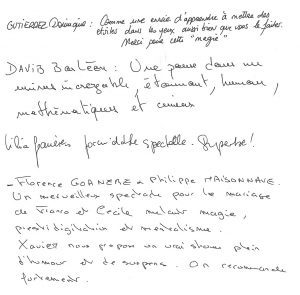 GUTIERREZ Dominique : Comme une envie d'apprendre à mettre des
étoiles dans les yeux aussi bien que vous le faites.
Merci pour cette "magie"
DAVID : Une dans un
incroyable, étonnant, humain,
mathématiques et
formidable spectacle. Superbe!
- Florence GOANERE & Philippe MAISONNAVE.
Un merveilleux spectacle pour le mariage
de et Cécile magie,
prestidigitation et mentalisme.
Xavier nous propose un vrai show plein
d'humour et de suspens. On recommande
fortement.